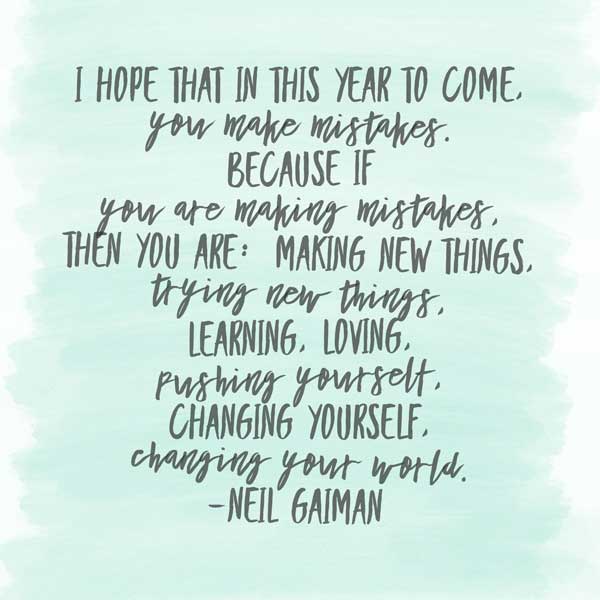 I HOPE THAT IN THIS YEAR TO COME,
you make mistakes.
BECAUSE IF
you are making mistakes,
THEN YOU ARE: MAKING NEW THINGS,
trying new things,
LEARNING, LOVING,
pushing yourself,
CHANGING YOURSELF,
changing your world.
-NEIL GAIMAN